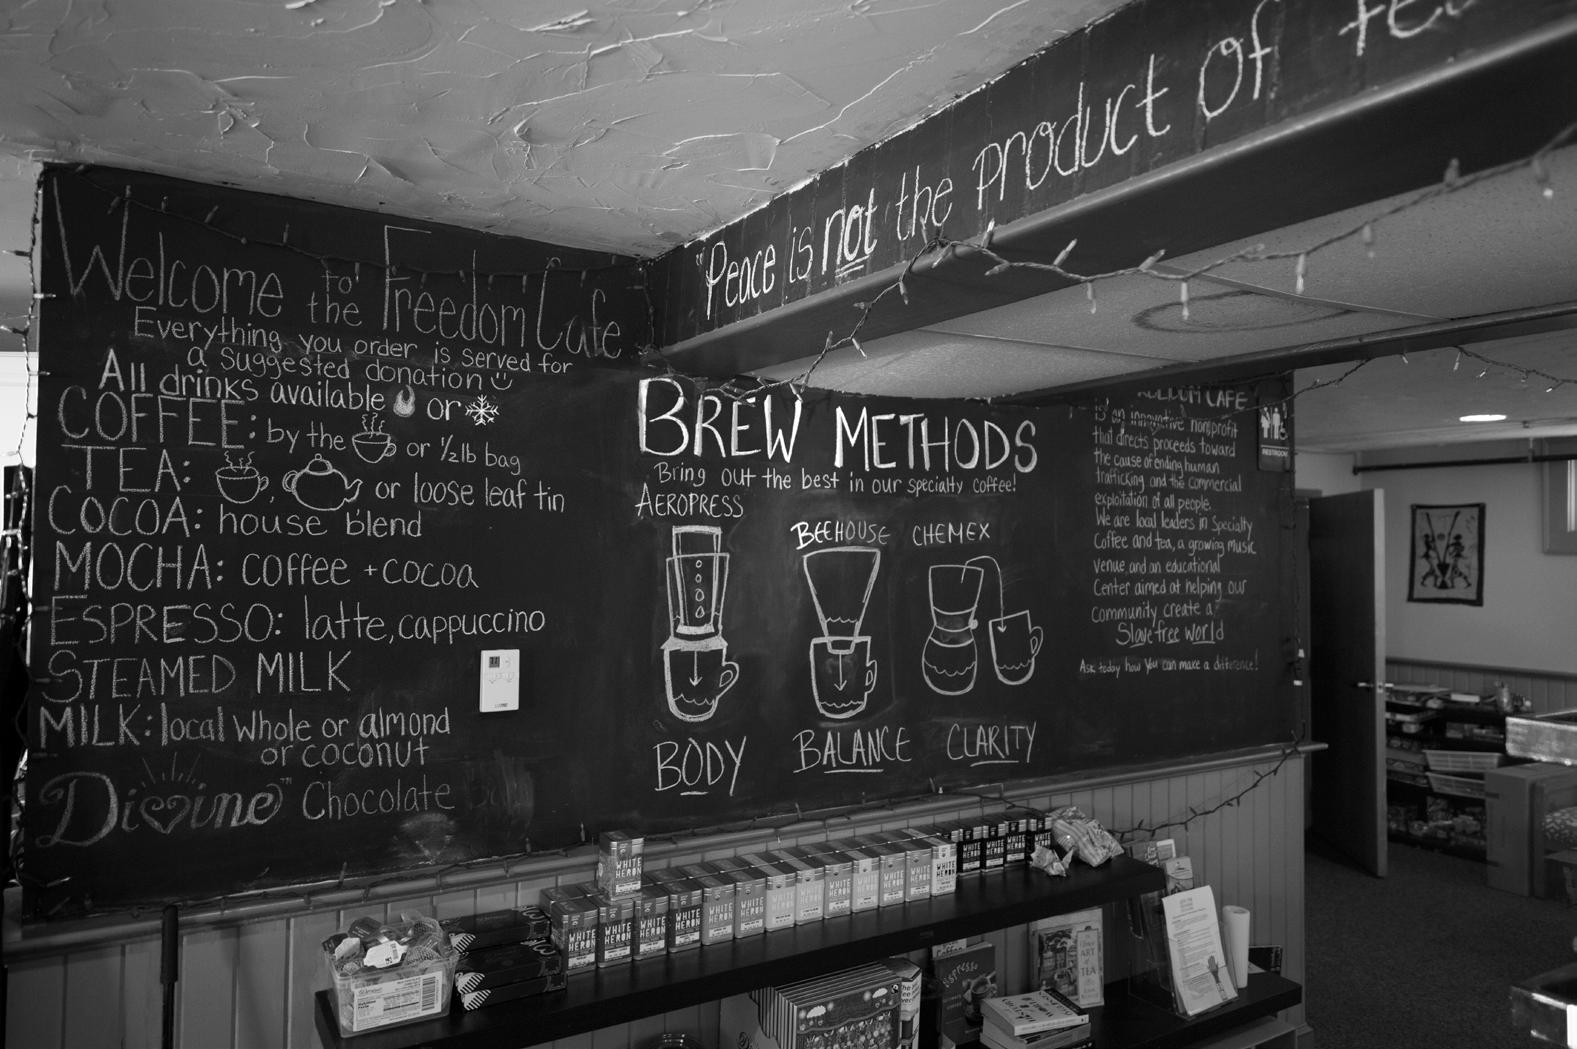 "Peace is not the product of
Welcome to the Freedom Cafe
Everything you order is served for
a suggested donation
All drinks available or
COFFEE: by the or ½lb bag
TEA: , or loose leaf tin
COCOA: house blend
MOCHA: coffee + cocoa
ESPRESSO: latte, cappuccino
STEAMED MILK
MILK: local whole or almond
or coconut
Divine™ Chocolate
BREW METHODS
Bring out the best in our specialty coffee!
AEROPRESS
BEEHOUSE CHEMEX
BODY BALANCE CLARITY
CAFE
is an innovative nonprofit
that directs proceeds toward
the cause of ending human
trafficking and the commercial
exploitation of all people.
We are local leaders in Specialty
Coffee and tea, a growing music
venue and an educational
Center aimed at helping our
community create a
Slave free world
Ask today how you can make a difference!
RESTROOM
WHITE HERON
WHITE HERON
WHITE HERON
WHITE HERON
WHITE HERON
WHITE HERON
WHITE HERON
WHITE HERON
WHITE HERON
WHITE HERON
WHITE HERON
ART OF TEA